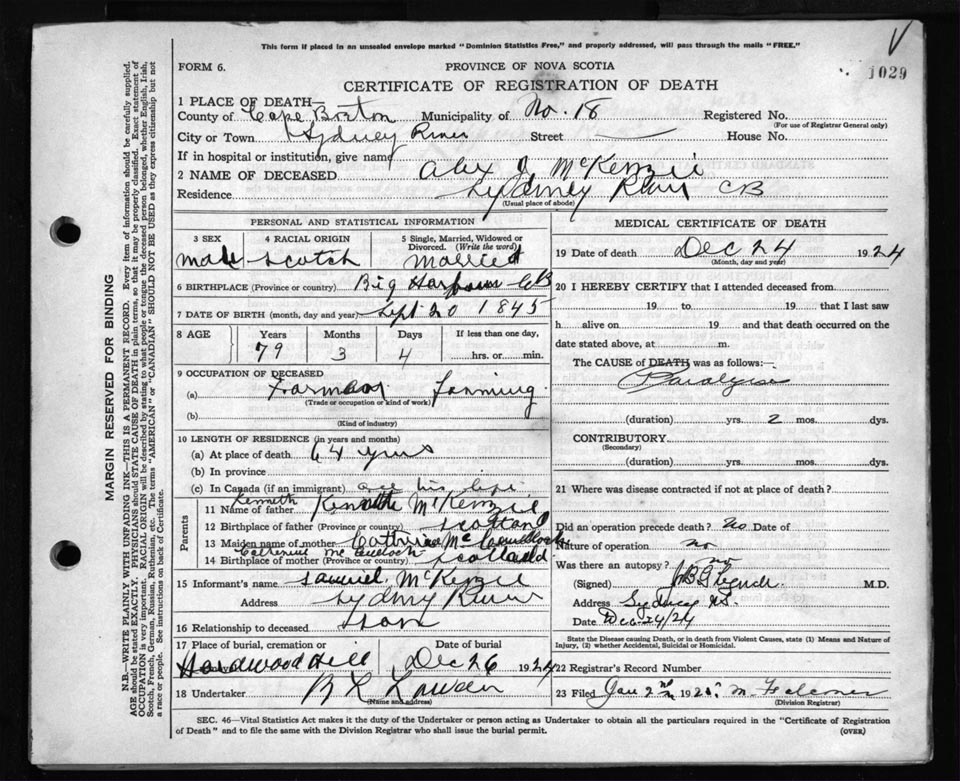 This form if placed in an unsealed envelope marked "Dominion Statistics Free," and properly addressed, will pass through the mails "FREE."
V
FORM 6.
PROVINCE OF NOVA SCOTIA
1029
CERTIFICATE OF REGISTRATION OF DEATH
1 PLACE OF DEATH—
County of Cape Breton Municipality of No. 18 Registered No.
(For use of Registrar General only)
City or Town Sydney River Street House No.
If in hospital or institution, give name
2 NAME OF DECEASED Alex J McKenzie
Residence Sydney River CB
(Usual place of abode)
PERSONAL AND STATISTICAL INFORMATION
3 SEX
male
4 RACIAL ORIGIN
Scotch
5 Single, Married, Widowed or Divorced. (Write the word)
Married
6 BIRTHPLACE (Province or country) Big Harbour CB
7 DATE OF BIRTH (month, day and year) Sept 20 1845
8 AGE
Years Months Days If less than one day,
79 3 4 hrs. or min.
9 OCCUPATION OF DECEASED
(a) Farming
(Trade or occupation or kind of work)
(b)
(Kind of industry)
10 LENGTH OF RESIDENCE (in years and months)
(a) At place of death 64 yrs
(b) In province
(c) In Canada (if an immigrant) all his life
Parents
Kenneth
11 Name of father Kenneth McKenzie
12 Birthplace of father (Province or country) Scotland
13 Maiden name of mother Catherine McCullock
Catherine McCullock
14 Birthplace of mother (Province or country) Scotland
15 Informant's name Samuel McKenzie
Address Sydney River
16 Relationship to deceased Son
17 Place of burial, cremation or Date of burial
Hardwood Hill Dec 26 1924
18 Undertaker
(Name and address)
MEDICAL CERTIFICATE OF DEATH
19 Date of death Dec 24 1924
(Month, day and year)
20 I HEREBY CERTIFY that I attended deceased from
19 to 19 that I last saw
h alive on 19 and that death occurred on the
date stated above, at m.
The CAUSE of DEATH was as follows:
Paralysis
(duration) yrs. 2 mos. dys.
CONTRIBUTORY
(Secondary)
(duration) yrs. mos. dys.
21 Where was disease contracted if not at place of death?
Did an operation precede death? No Date of
Nature of operation no
Was there an autopsy? no
(Signed) Lynch M.D.
Address Sydney N.S.
Date Dec 24/24
State the Disease causing Death, or in death from Violent Causes, state (1) Means and Nature of Injury, (2) whether Accidental, Suicidal or Homicidal.
22 Registrar's Record Number
23 Filed Jan 2nd 1925 M Falconer
(Division Registrar)
SEC. 46—Vital Statistics Act makes it the duty of the Undertaker or person acting as Undertaker to obtain all the particulars required in the "Certificate of Registration
of Death" and to file the same with the Division Registrar who shall issue the burial permit.
(OVER)
MARGIN RESERVED FOR BINDING
N.B.—WRITE PLAINLY WITH UNFADING INK—THIS IS A PERMANENT RECORD. Every item of information should be carefully supplied.
AGE should be stated EXACTLY. PHYSICIANS should STATE CAUSE OF DEATH in plain terms, so that it may be properly classified. Exact statement of
OCCUPATION is very important. RACIAL ORIGIN will be described by stating to what people or tongue the deceased person belonged, whether English, Irish,
Scotch, French, German, Russian, Ruthenian, etc. The terms "AMERICAN" or "CANADIAN" SHOULD NOT BE USED as they express citizenship but not
a race or people. See instructions on back of Certificate.